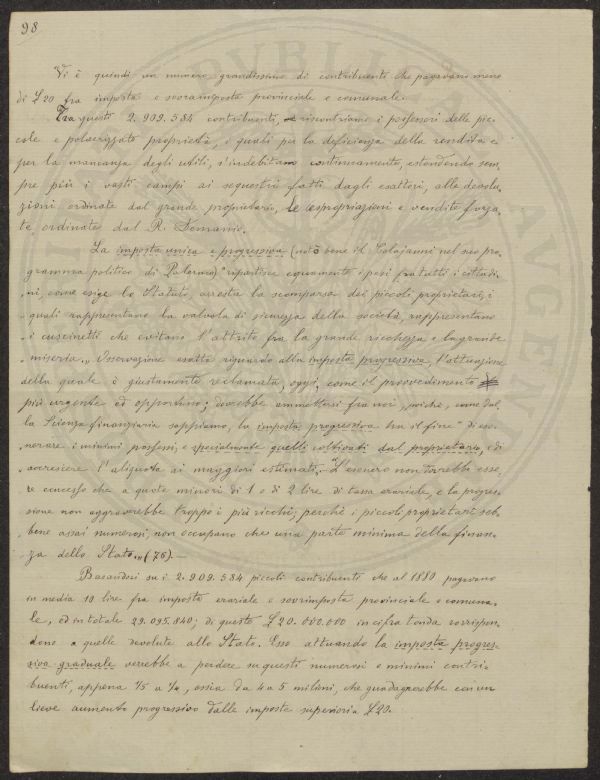 98
Vi è quindi un numero grandissimo di contribuenti che pagavano meno
di £20 fra imposta e sovraimposta provinciale e comunale.
Tra questi 2.909.584 contribuenti, riscontriamo i possessori delle pic-
cole e polverizzate proprietà, i quali per la deficienza della rendita e
per la mancanza degli utili, s'indebitano continuamente, estendendo sem-
pre più i vasti campi ai sequestri fatti dagli esattori, alle devolu-
zioni ordinate dal grande proprietario, le espropriazioni e vendite forza-
te ordinate dal R. Demanio.
La imposta unica e progressiva (notò bene il Colajanni nel suo pro-
gramma politico di Palermo) "ripartisce equamente i pesi fra tutti i cittadi-
"ni, come esige lo Statuto, arresta la scomparsa dei piccoli proprietari, i
"quali rappresentano la valvola di sicurezza della società, rappresentano
"i cuscinetti che evitano l'attrito fra la grande ricchezza e la grande
"miseria." Osservazione esatta riguardo alla imposta progressiva, l'attuazione
della quale è giustamente reclamata, oggi, come il provvedimento
più urgente ed opportuno; dovrebbe ammettersi fra noi "poichè, come dal-
la Scienza finanziaria sappiamo, la imposta progressiva ha il fine "di eso-
"nerare i minimi possessi, e specialmente quelli coltivati dal proprietario, e di
"accrescere l'aliquota ai maggiori estimati. "L'esonero non dovrebb' esse-
re concesso che a quote minori di 1 o di 2 lire di tassa erariale, e la progres-
sione non aggraverebbe troppo i più ricchi; perchè i piccoli proprietari seb-
bene assai numerosi, non occupano che una parte minima della finan-
za dello Stato." (76). —
Basandoci su i 2.909.584 piccoli contribuenti che al 1880 pagavano
in media 10 lire fra imposta erariale e sovrimposta provinciale e comuna-
le, ed in totale 29.095.840; di questo £20.000.000 in cifra tonda corrispon-
dono a quelle devolute allo Stato. Esso attuando la imposta progres-
siva graduale verrebbe a perdere su questi numerosi e minimi contri-
buenti, appena 1/5 a 1/4, ossia da 4 a 5 milioni, che guadagnerebbe con un
lieve aumento progressivo dalle imposte superiori a £20.